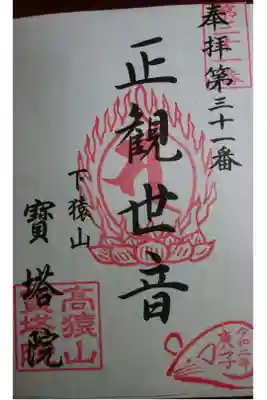 奉拝第三十一番
正観世音
下猿山
寶塔院
高猿山
寶塔院
令和二年
庚子